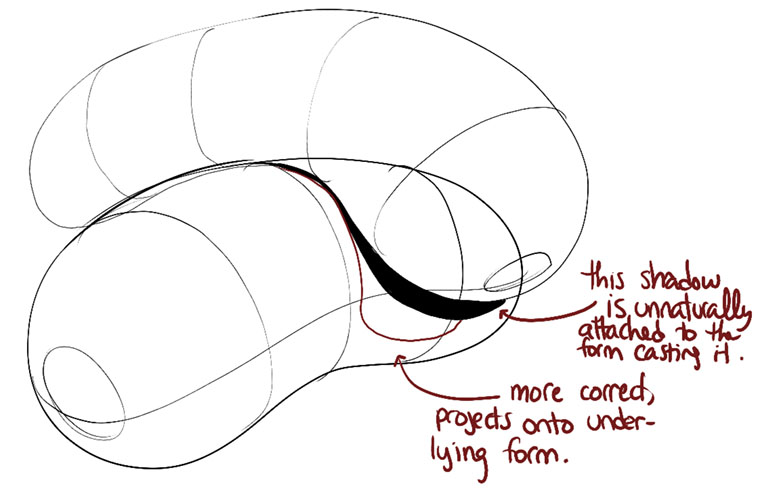 this shadow
is unnaturally
attached to the
form casting it.
more correct,
projects onto under-
lying form.